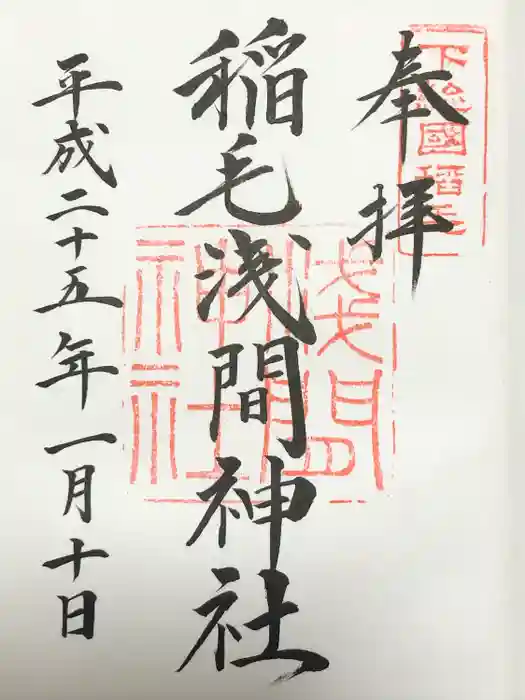 奉拝
下總國稲毛
稲毛浅間神社
浅間神社
平成二十五年一月十日